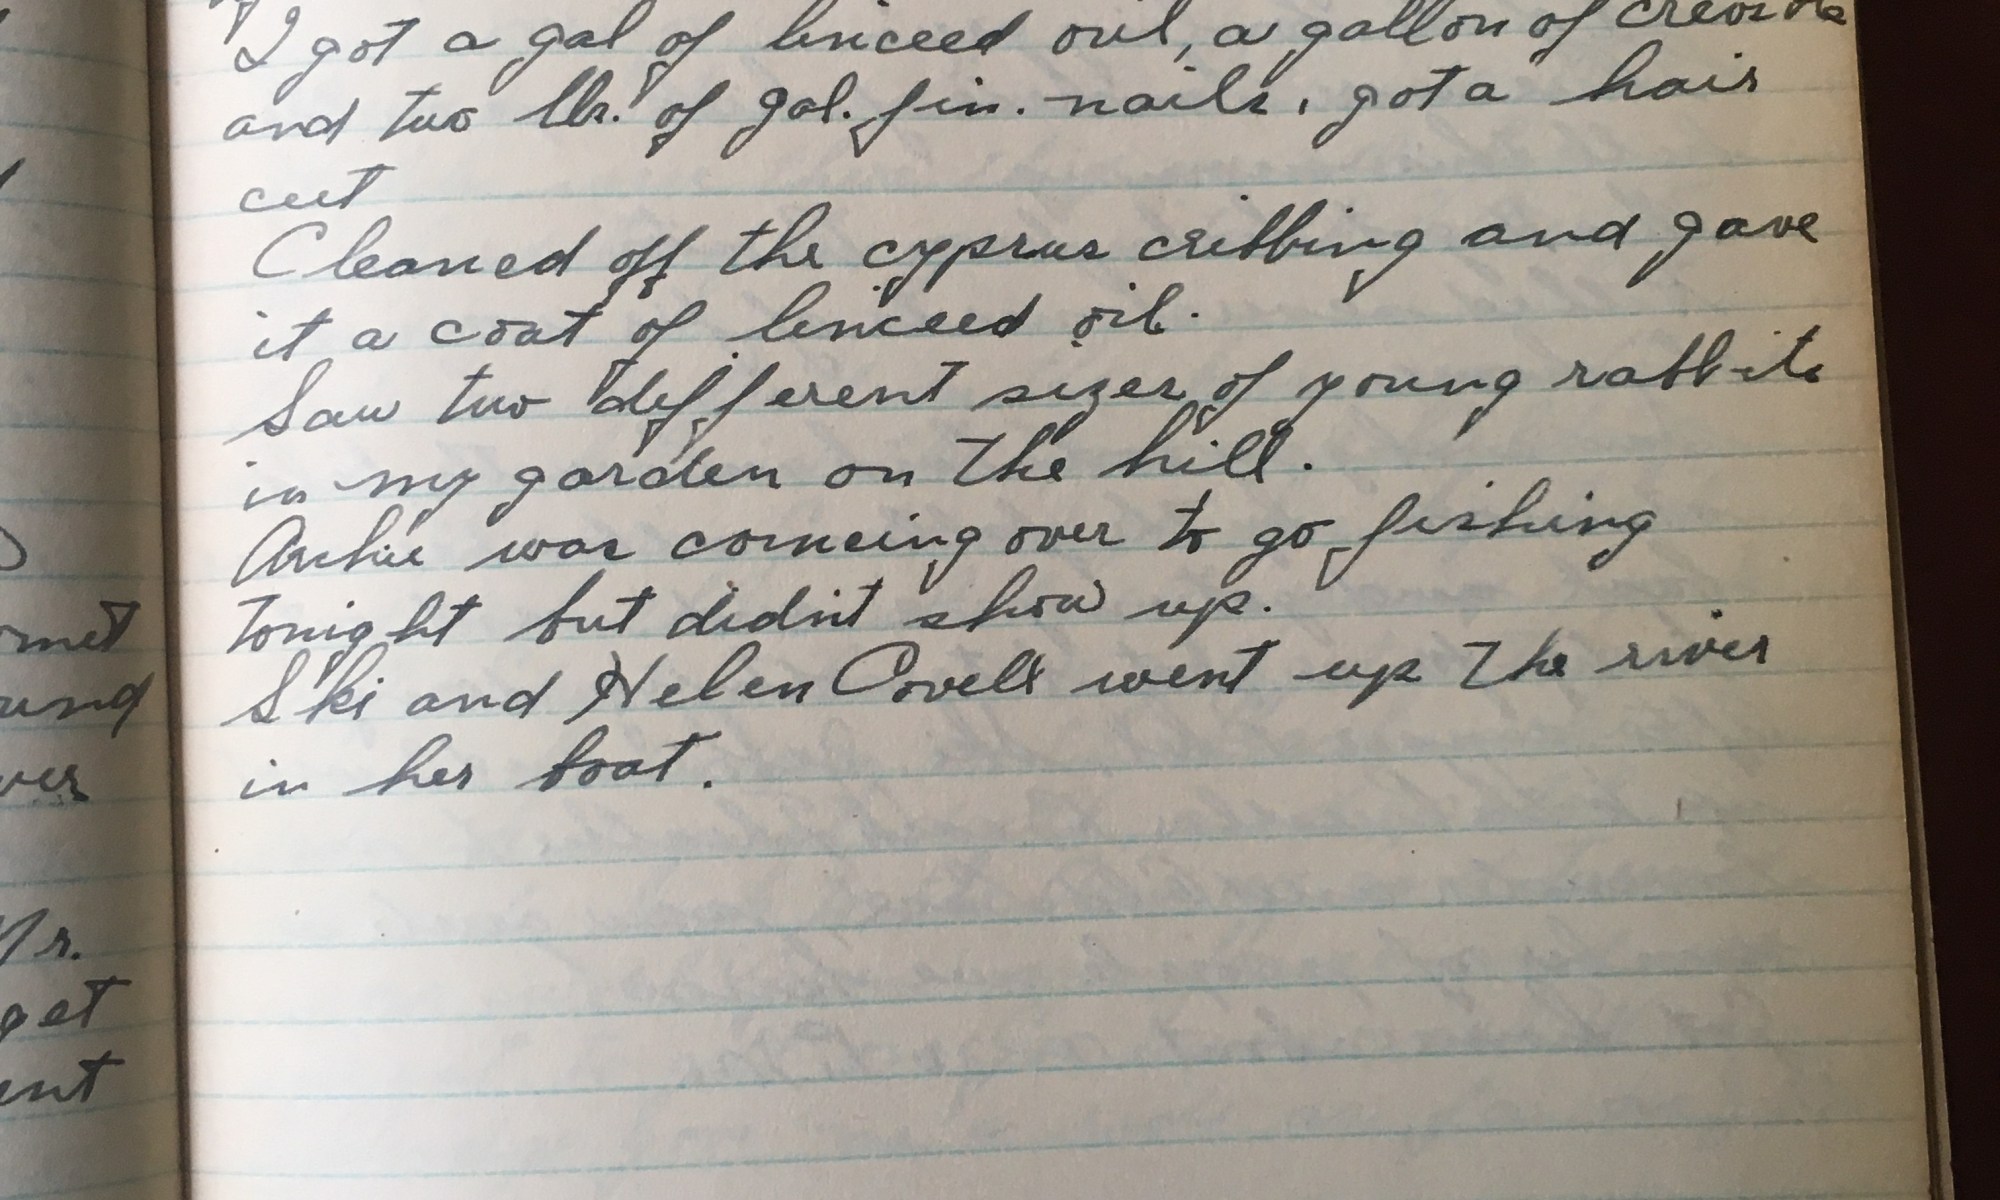 I got a gal of linceed oil, a gallon of creosote
and two lbs. of gal. fin. nails, got a hair
cut
Cleaned off the cyprus cribbing and gave
it a coat of linceed oil.
Saw two different sizes of young rabbits
in my garden on the hill.
Archie was comeing over to go fishing
tonight but didn't show up.
Ski and Helen Covell went up the river
in her boat.
Mr.
get